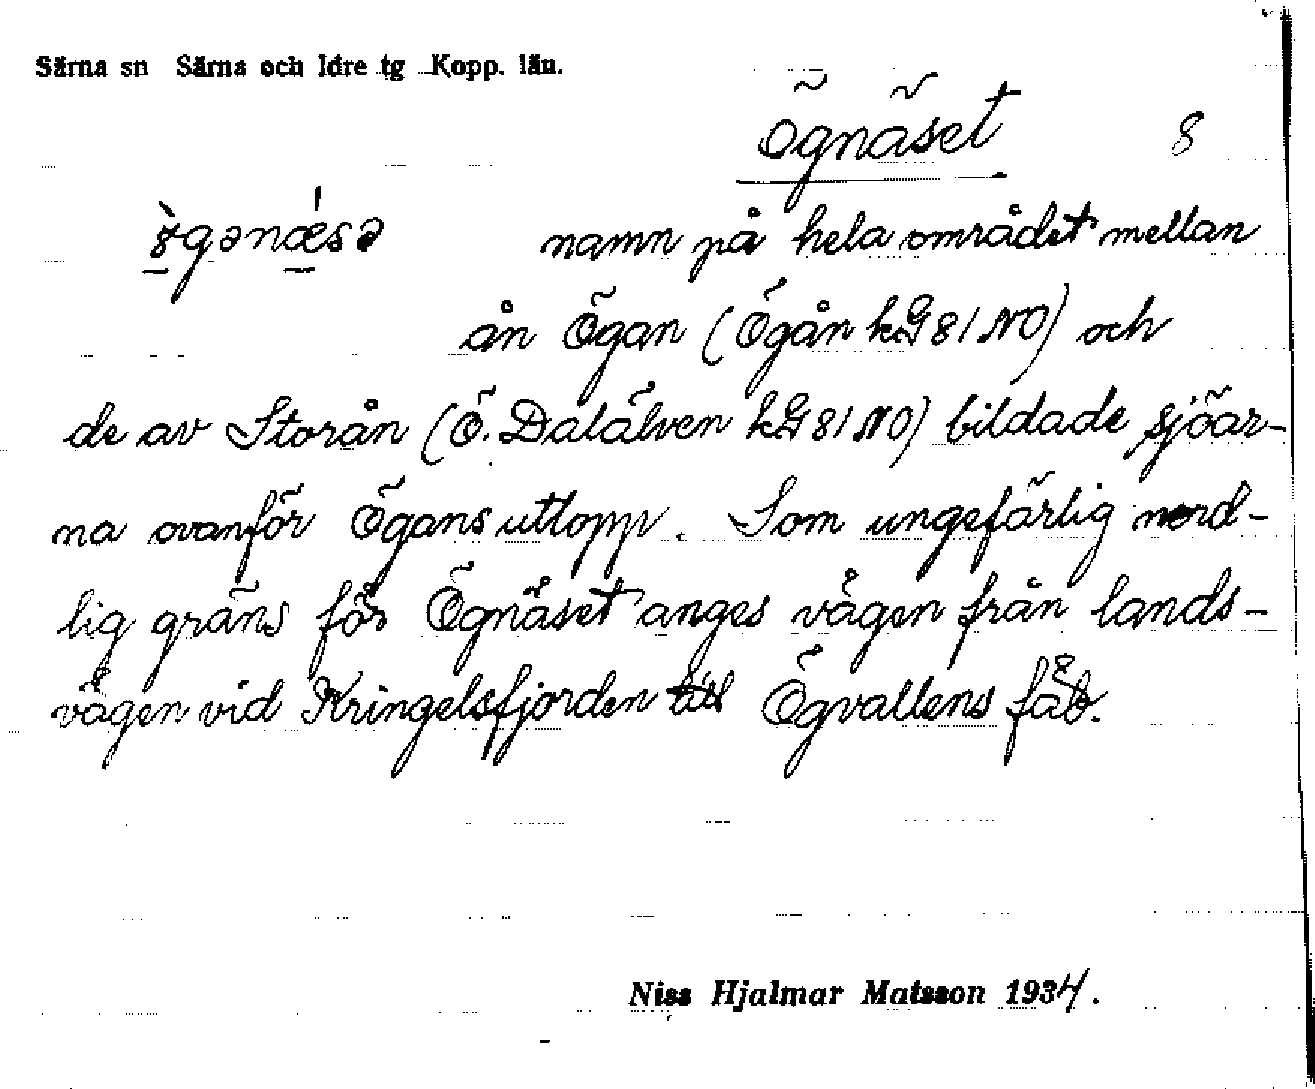 Särna sn Särna och Idre tg Kopp. län.
Ögnäset 8
namn på hela området mellan
ån Ögan (Ögån kG 81 NO) och
de av Storån (Ö. Dalälven kG 81 NO) bildade sjöar-
na ovanför Ögans utlopp. Som ungefärlig nord-
lig gräns för Ögnäset anges vägen från lands-
vägen vid Kringelsfjorden till Ögvallens fäb.
Niss Hjalmar Matsson 1934.